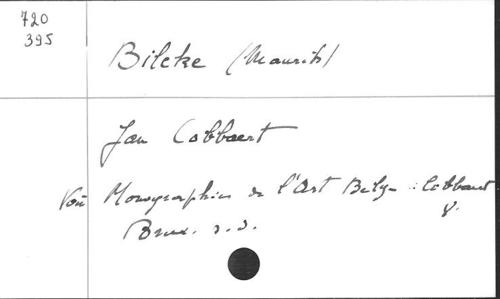 720
395
Bilcke (Maurits)
Jan Cobbaert
Voir Monographies de l'Art Belge : Cobbaert
8.
Brux. s.d.